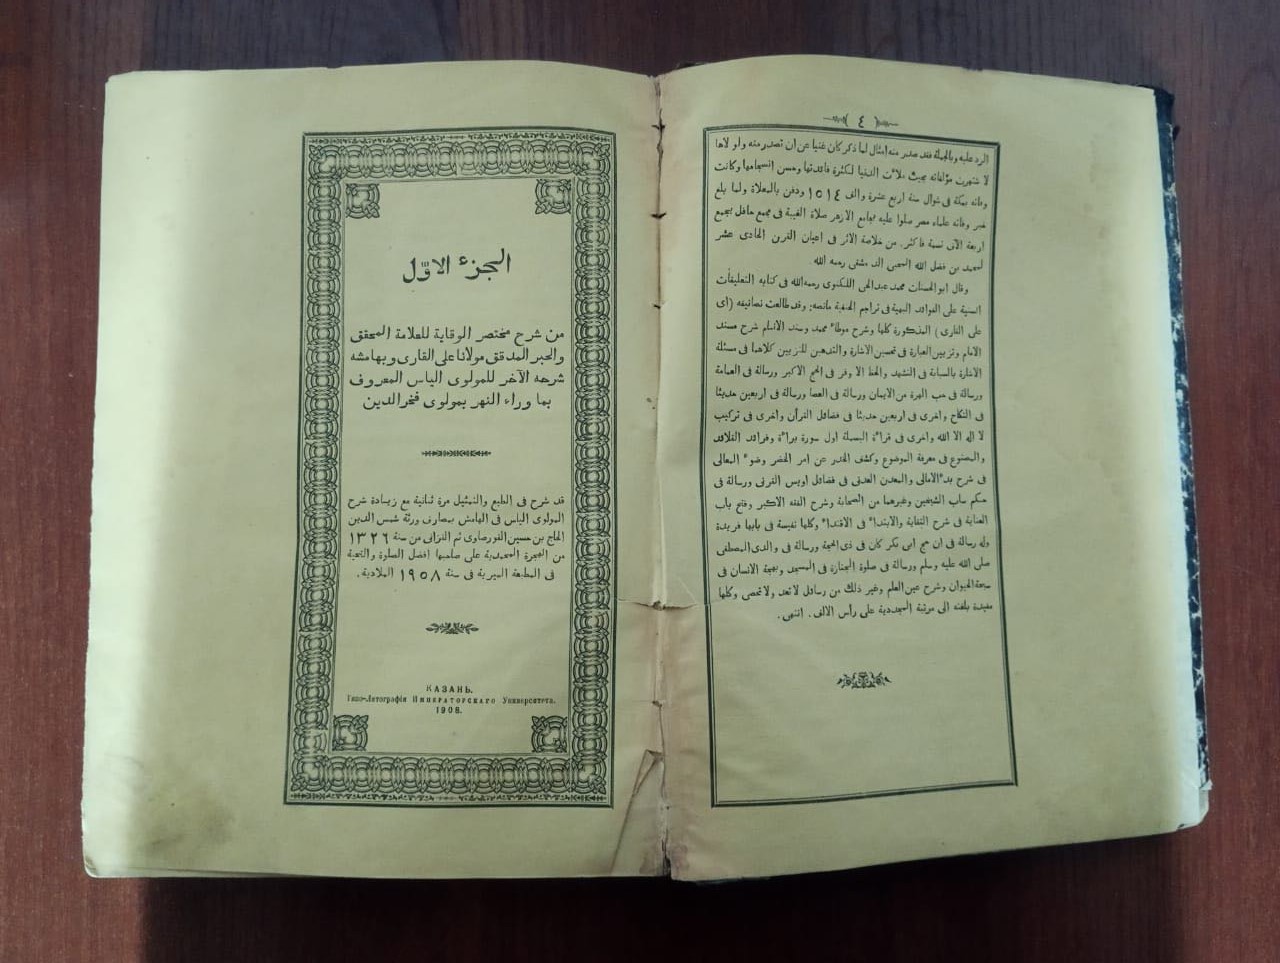 ٤
الرد عليه وبالجملة فقد صدر منه امثال لما ذكر كان غنيا عن ان تصدر منه ولو لاها
لا شتهرت مؤلفاته بحيث ملاءت الدنيا لكثرة فائدتها وحسن انسجامها وكانت
وفاته بمكة فى شوال سنة اربع عشرة والف ١٠١٤ ودفن بالمعلاة ولما بلغ
خبر وفاته علماء مصر صلوا عليه بجامع الازهر صلاة الغيبة فى مجمع حافل يجمع
اربعة الآف نسمة فاكثر. من خلاصة الاثر فى اعيان القرن الحادى عشر
لمحمد بن فضل الله المحبى الدمشقى رحمه الله
وقال ابو الحسنات محمد عبدالحى اللكنوى رحمه الله فى كتابه التعليقات
السنية على الفوائد البهية فى تراجم الحنفية مانصه: وقد طالعت تصانيفه (اى
على القارى) المذكورة كلها وشرح موطاء محمد وسند الانام شرح مسند
الامام وتزيين العبارة فى تحسين الاشارة والتدهين للتزيين كلاهما فى مسئلة
الاشارة بالسبابة فى التشهد والحظ الاوفر فى الحج الاكبر ورسالة فى العمامة
ورسالة فى حب الهرة من الايمان ورسالة فى العصا ورسالة فى اربعين حديثا
فى النكاح واخرى فى اربعين حديثا فى فضائل القرآن واخرى فى تركيب
لا اله الا الله واخرى فى قراءة البسملة اول سورة براءة وفرائد القلائد
والمصنوع فى معرفة الموضوع وكشف الخدر عن امر الخضر وضوء المعالى
فى شرح بدء الامالى والمعدن العدنى فى فضائل اويس القرنى ورسالة فى
حكم ساب الشيخين وغيرهما من الصحابة وشرح الفقه الاكبر وفتح باب
العناية فى شرح النقاية والابتداء فى الاقتداء وكلها نفيسة فى بابها فريدة
وله رسالة فى ان حج ابى بكر كان فى ذى الحجة ورسالة فى والدى المصطفى
صلى الله عليه وسلم ورسالة فى صلوة الجنازة فى المسجد وبهجة الانسان فى
مهجة الحيوان وشرح عين العلم وغير ذلك من رسائل لاتعد ولاتحصى وكلها
مفيدة بلغته الى مرتبة المجددية على رأس الالف. انتهى.
الجزء الاوّل
من شرح مختصر الوقاية للعلامة المحقق
والحبر المدقق مولانا على القارى وبهامشه
شرحه الآخر للمولوى الياس المعروف
بما وراء النهر بمولوى فخر الدين
قد شرح فى الطبع والتمثيل مرة ثانية مع زيادة شرح
المولوى الياس فى الهامش بمصارف ورثة شمس الدين
الحاج بن حسين القورصاوى ثم القزانى من سنة ١٣٢٦
من الهجرة المحمدية على صاحبها افضل الصلوة والتحية
فى المطبعة الميرية فى سنة ١٩٠٨ الملادية.
КАЗАНЬ.
Типо-Литографія Императорскаго Университета.
1908.